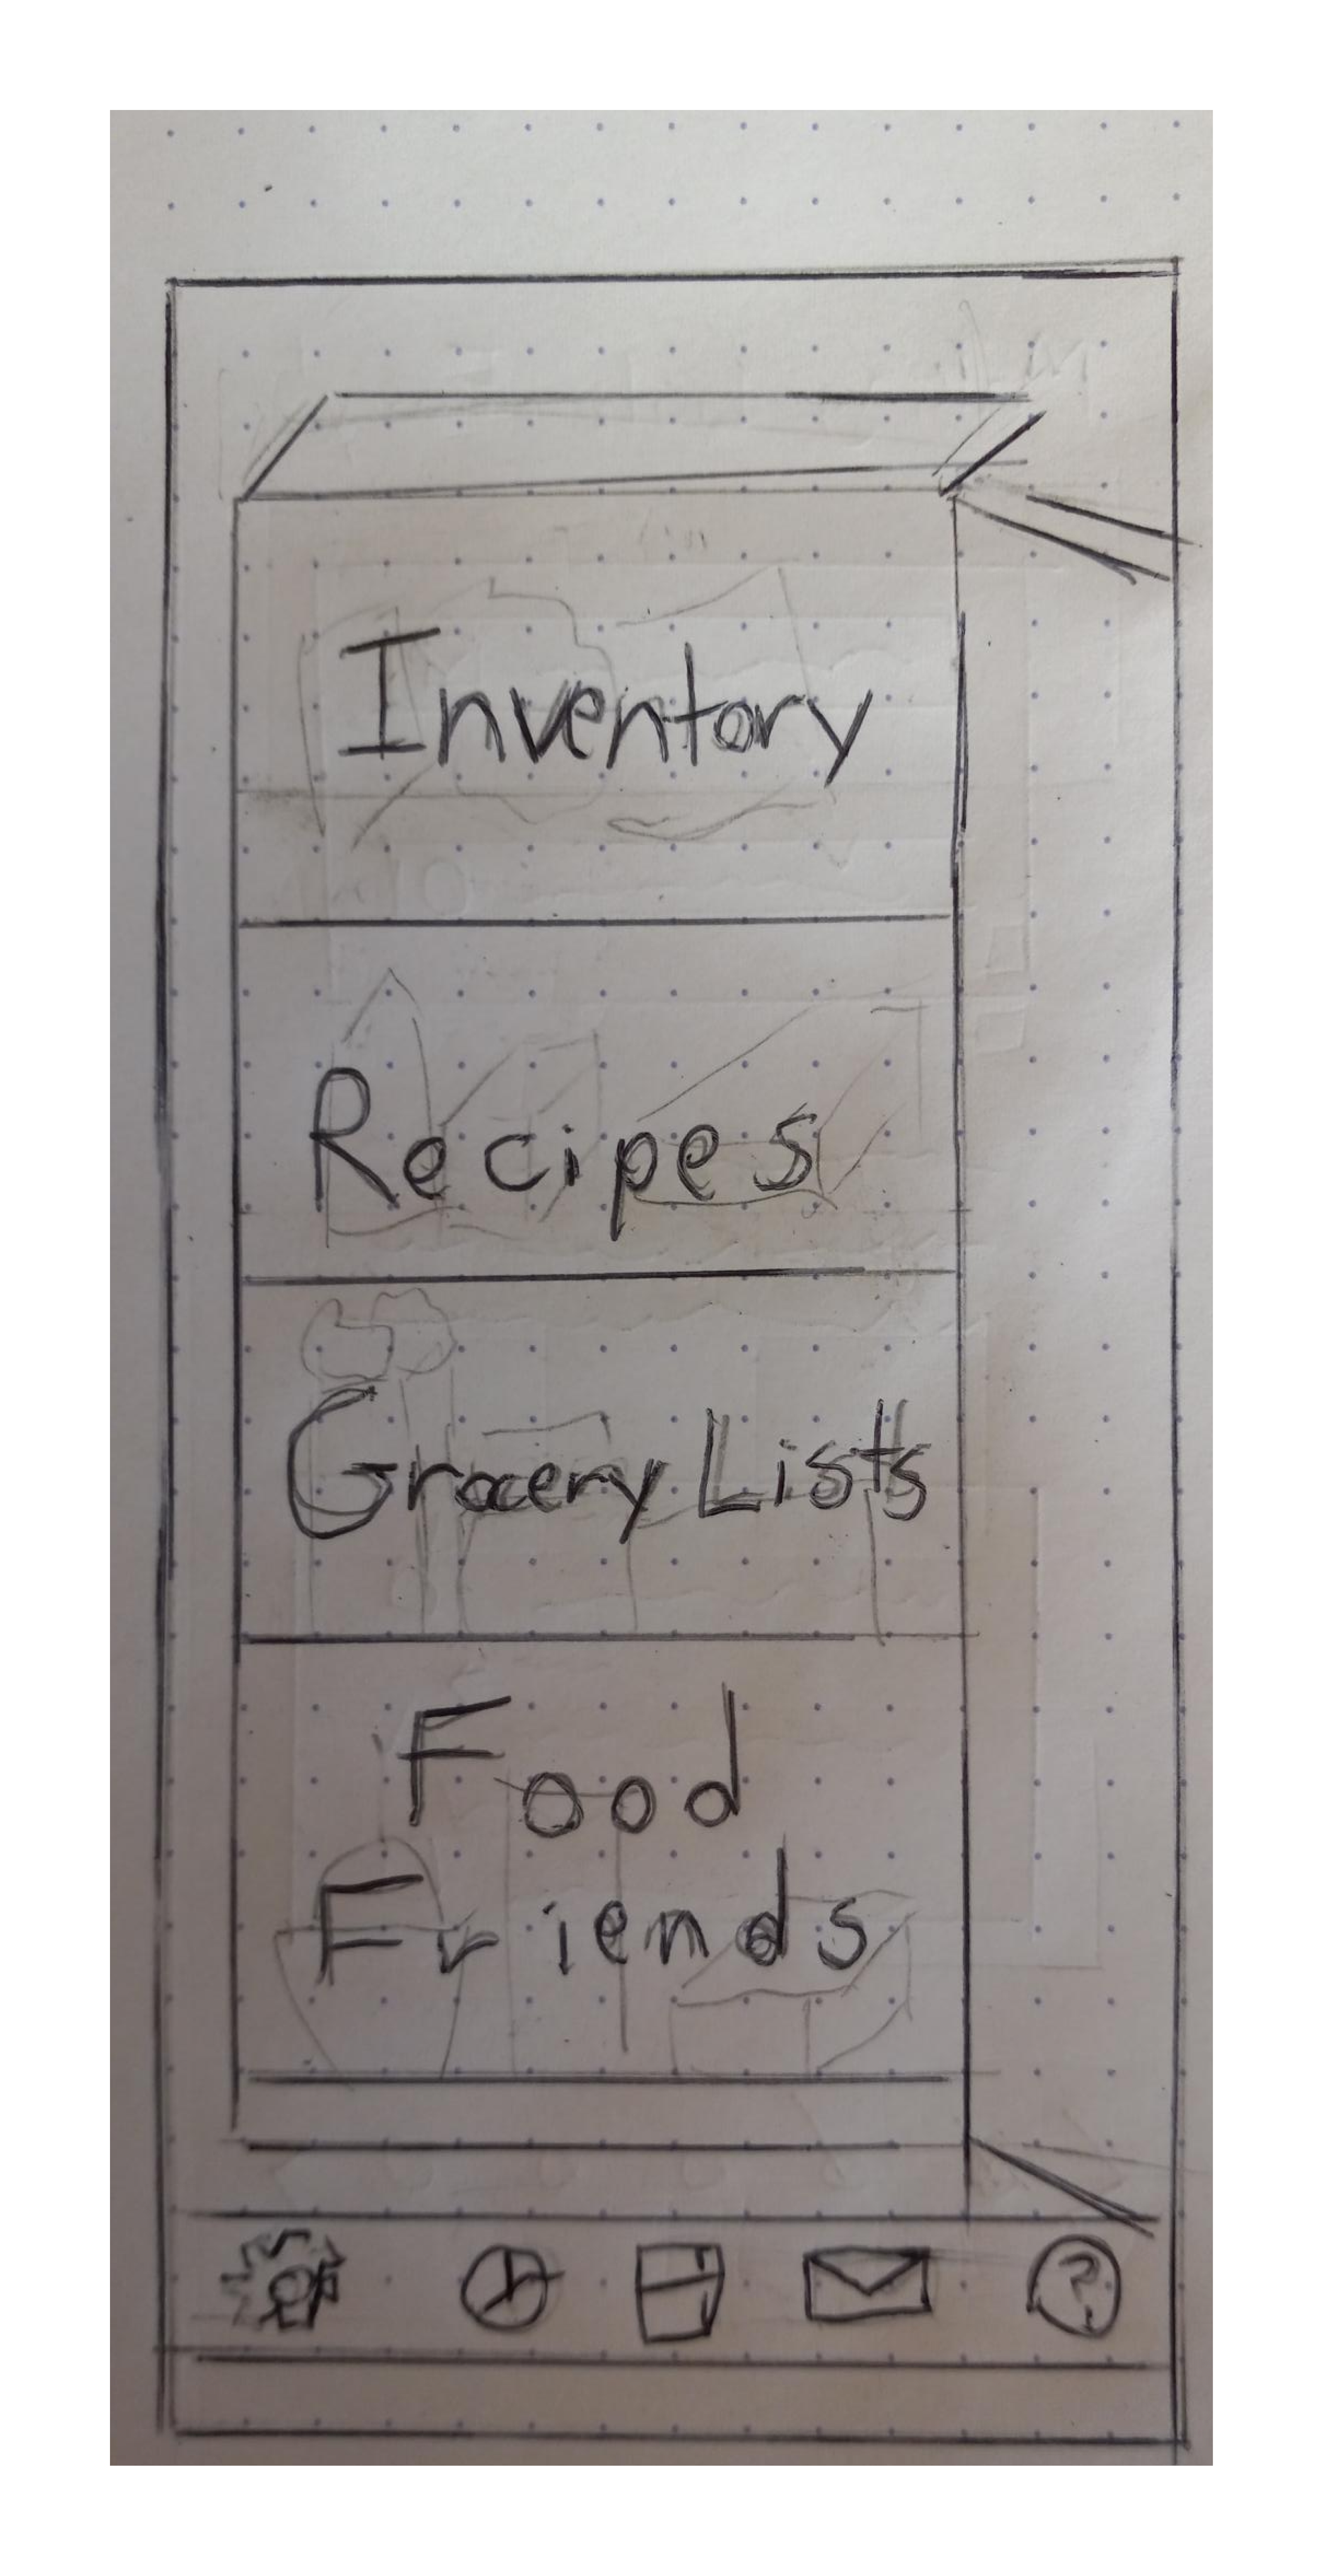 Inventory
Recipes
Grocery Lists
Food
Friends
?